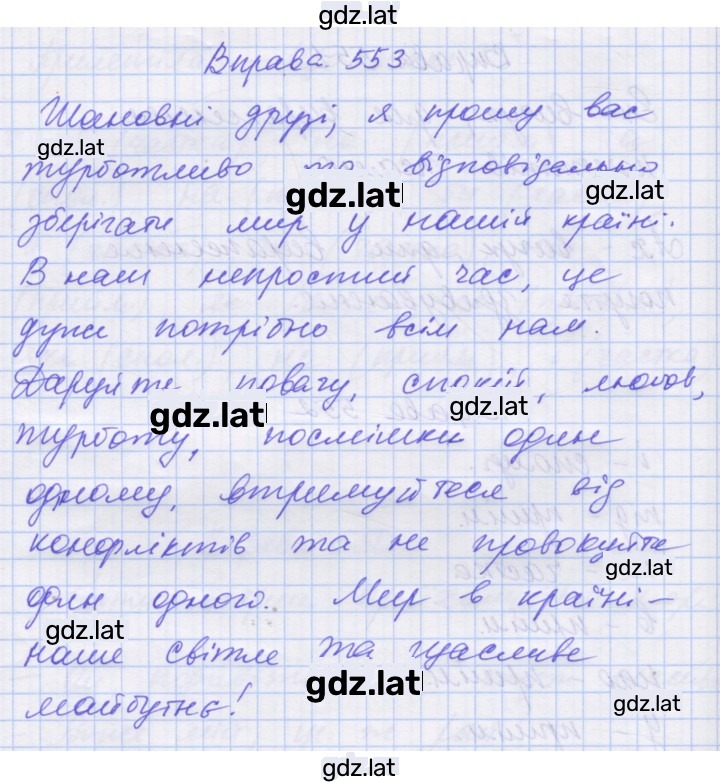 gdz.lat
Вправа 553
Шановні друзі, я прошу вас
gdz.lat
турботливо та відповідально
gdz.lat gdz.lat
зберігати мир у нашій країні.
В наш непростий час, це
дуже потрібно всім нам.
Даруйте повагу, спокій, любов,
gdz.lat gdz.lat
турботу, посмішки один
одному, втримуйтеся від
конфліктів та не провокуйте
gdz.lat
один одного. Мир в країні –
gdz.lat
наше світле та щасливе
gdz.lat
майбутнє!
gdz.lat
gdz.lat